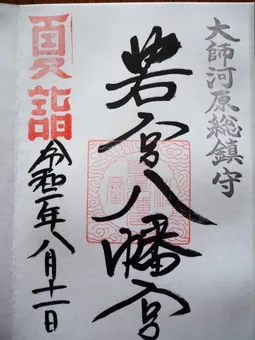 大師河原総鎮守
若宮八幡宮
夏詣
令和二年八月十一日